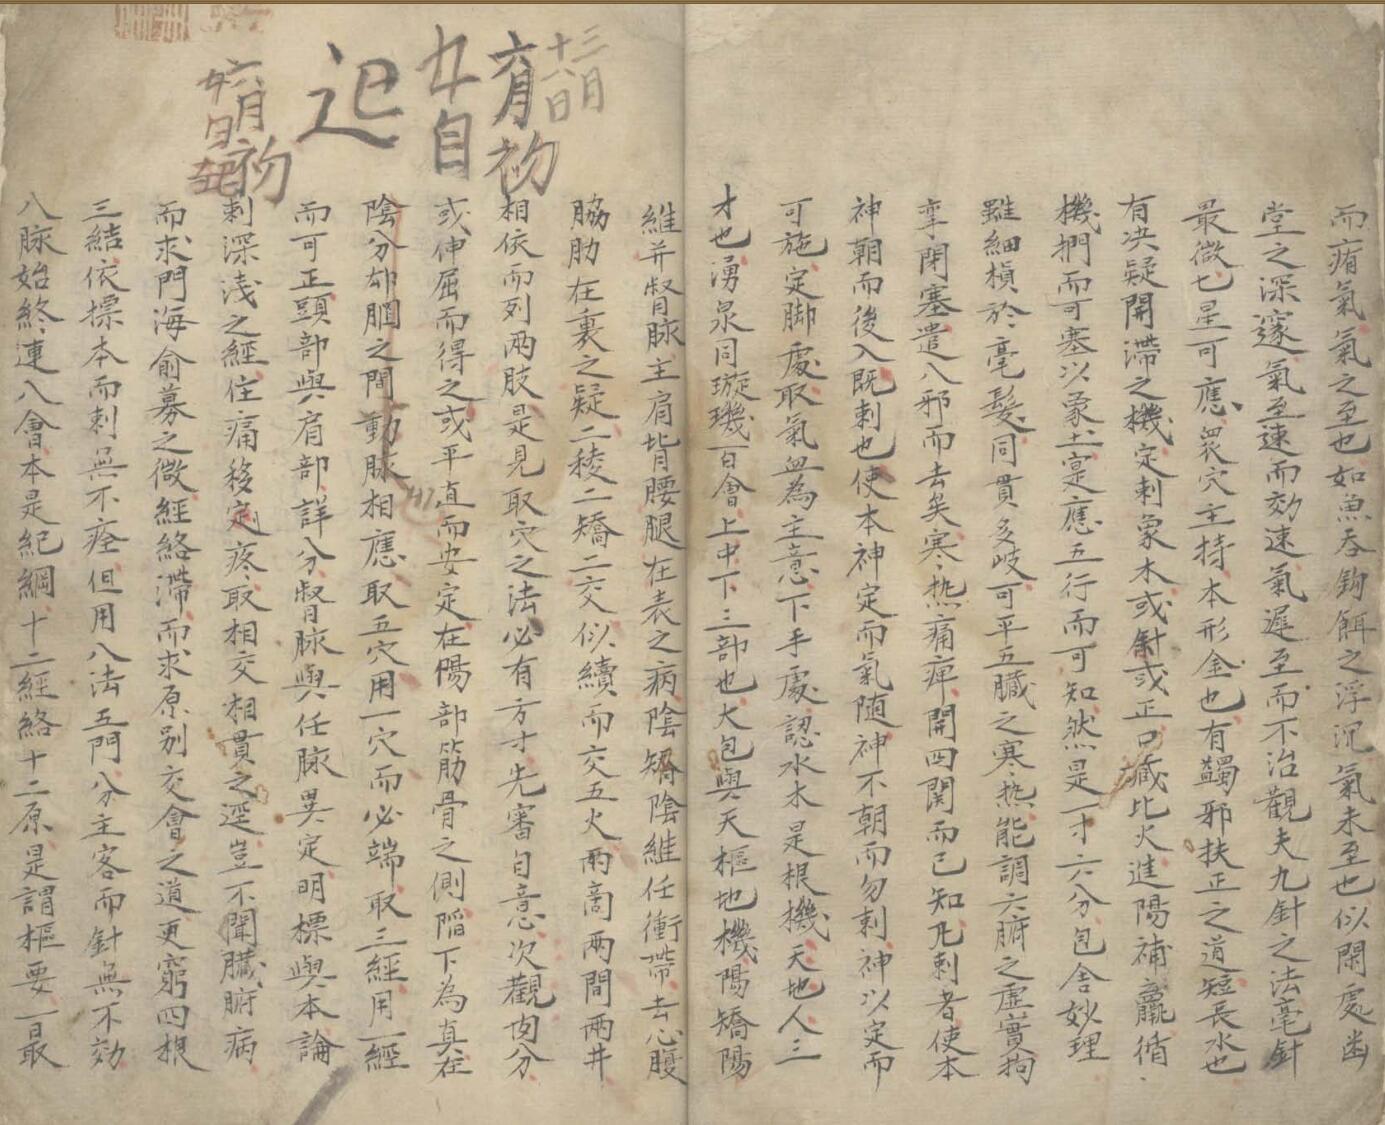 三月
十六日
六月初
廿日
起
六月初
廿
日起
而痏氣氣之至也如魚吞鉤餌之浮沉氣未至也似閑處幽
堂之深邃氣至速而効速氣遲至而不治觀夫九針之法毫針
最微七星可應衆穴主持本形金也有蠲邪扶正之道短長水也
有决疑開滯之機定刺象木或斜或正口藏比火進陽補羸循
機捫而可塞以象土寔應五行而可知然是一寸六分包含妙理
雖細楨於毫髮同貫多岐可平五臟之寒热能調六腑之虛實拘
挛閉塞遣八邪而去矣寒热痛痺開四関而已知凡刺者使本
神朝而後入既刺也使本神定而氣随神不朝而勿刺神以定而
可施定脚處取氣血為主意下手處認水木是根機天地人三
才也湧泉同璇璣百會上中下三部也大包與天樞地機陽矯陽
維并督脉主肩背腰腿在表之病陰矯陰維任衝帶去心腹
脇肋在裏之疑二稜二矯二交似續而交五火兩啇兩間兩井
相依而列兩肢是見取穴之法必有方寸先審自意次觀肉分
或伸屈而得之或平直而安定在陽部筋骨之側陷下為真在
陰分郄膕之間動脉相應取五穴用一穴而必端取三經用一經
而可正頭部與肩部詳分督脉與任脉異定明標與本論
刺深淺之經住痛移定疼取相交相貫之逕豈不聞臟腑病
而求門海俞募之微經絡滯而求原别交會之道更窮四根
三結依摽本而刺無不痊但用八法五門分主客而針無不効
八脉始終連八會本是紀綱十二經絡十二原是謂樞要一日㝡